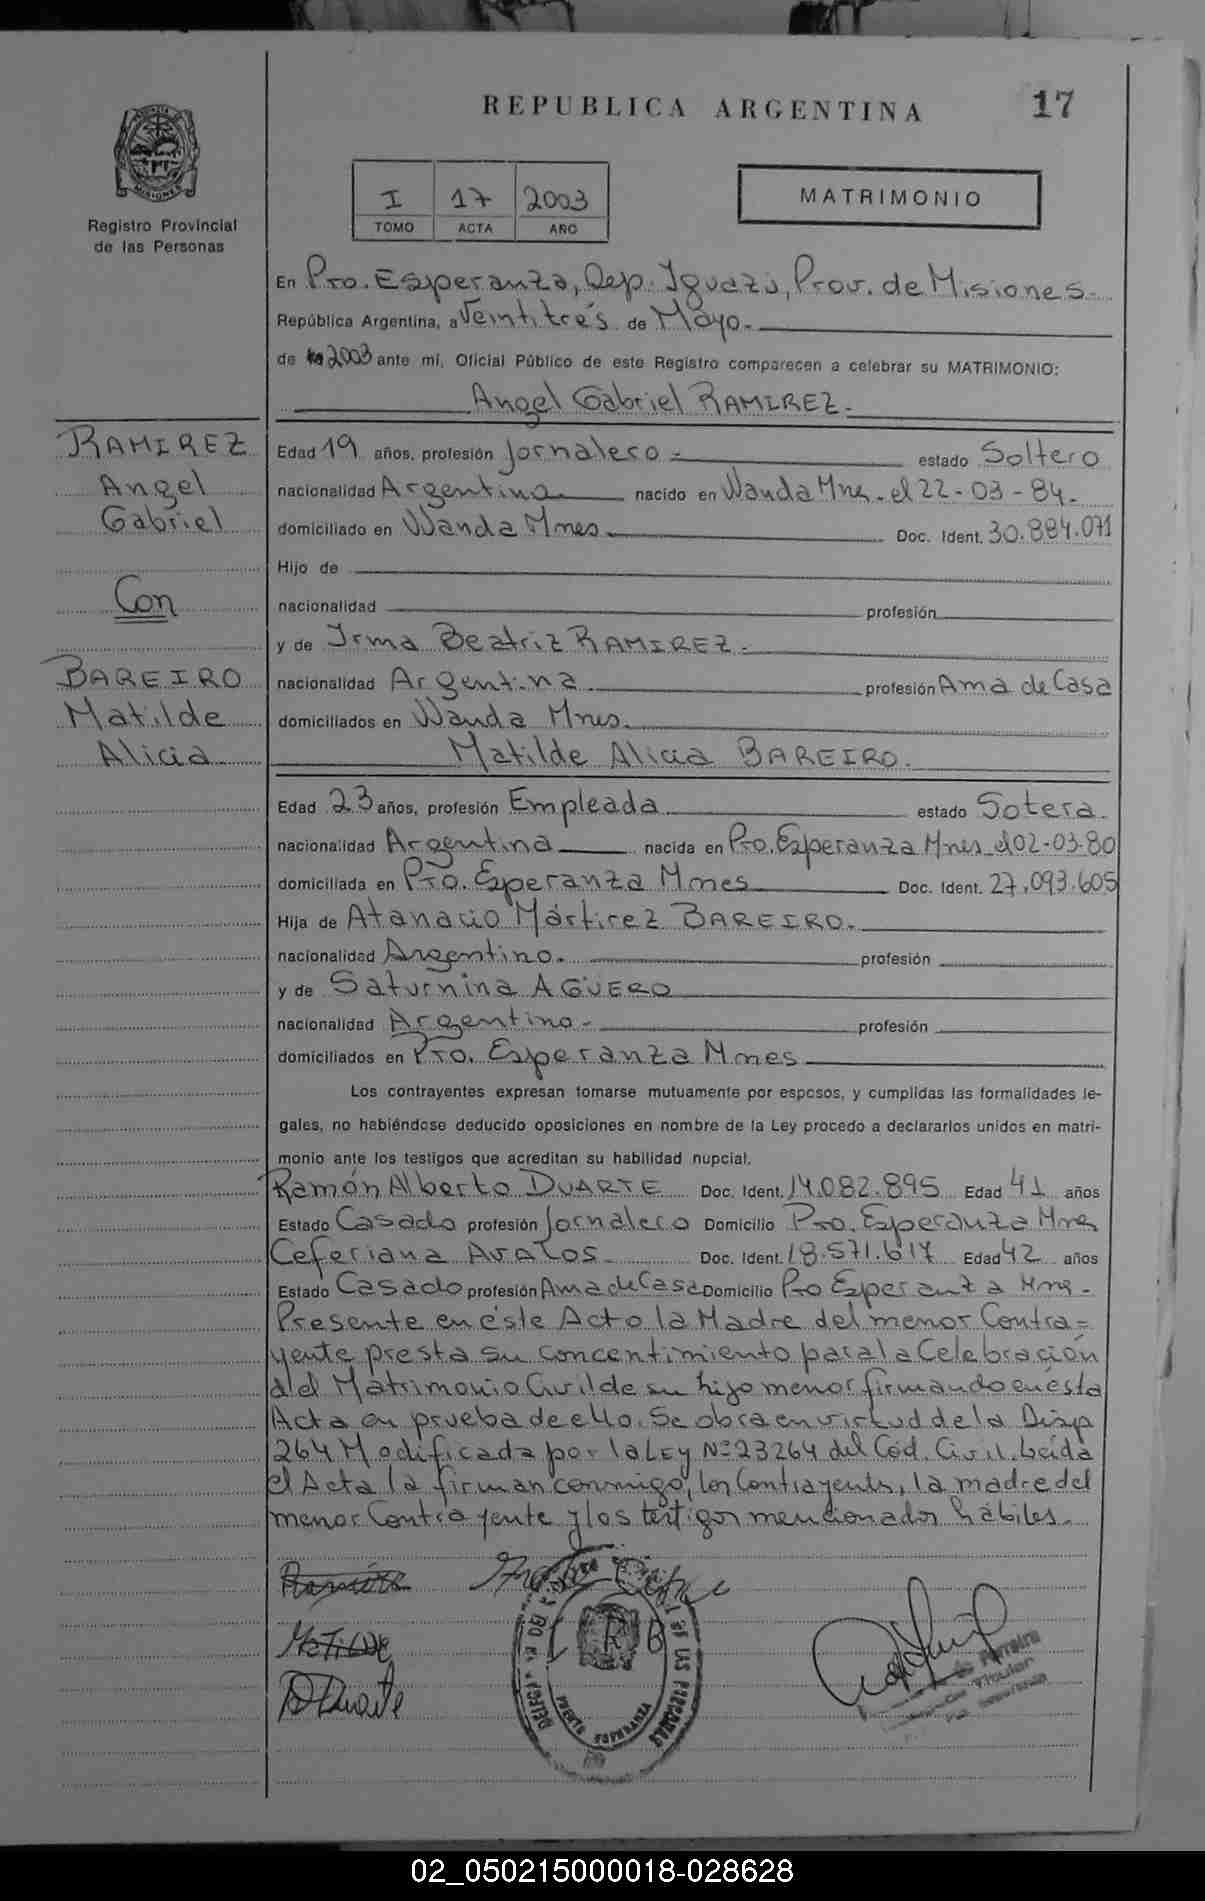 REPUBLICA ARGENTINA 17
MISIONES
Registro Provincial
de las Personas
I 17 2003
TOMO ACTA AÑO
MATRIMONIO
En Pto. Esperanza, Dep. Iguazú, Prov. de Misiones.-
República Argentina, a Veintitrés de Mayo.-
de 2003 ante mí, Oficial Público de este Registro comparecen a celebrar su MATRIMONIO:
Angel Gabriel RAMIREZ.-
RAMIREZ
Angel
Gabriel
Con
BAREIRO
Matilde
Alicia
Edad 19 años, profesión Jornalero.- estado Soltero
nacionalidad Argentina nacido en Wanda Mnes.- el 22-03-84.-
domiciliado en Wanda Mnes. Doc. Ident. 30.884.071
Hijo de
nacionalidad profesión
y de Irma Beatriz RAMIREZ.-
nacionalidad Argentina profesión Ama de Casa
domiciliados en Wanda Mnes.
Matilde Alicia BAREIRO.
Edad 23 años, profesión Empleada estado Sotera.
nacionalidad Argentina nacida en Pto. Esperanza Mnes. el 02-03-80
domiciliada en Pto. Esperanza Mnes Doc. Ident. 27.093.605
Hija de Atanacio Mártirez BAREIRO.
nacionalidad Argentino.- profesión
y de Saturnina AGÜERO
nacionalidad Argentino.- profesión
domiciliados en Pto. Esperanza Mnes
Los contrayentes expresan tomarse mutuamente por esposos, y cumplidas las formalidades le-
gales, no habiéndose deducido oposiciones en nombre de la Ley procedo a declararlos unidos en matri-
monio ante los testigos que acreditan su habilidad nupcial.
Ramón Alberto DUARTE Doc. Ident. 14.082.895 Edad 41 años
Estado Casado profesión Jornalero Domicilio Pto. Esperanza Mnes
Ceferiana AVALOS. Doc. Ident. 18.571.617 Edad 42 años
Estado Casado profesión Ama de Casa Domicilio Pto Esperanza Mnes.-
Presente en éste Acto la Madre del menor Contra=
yente presta su concentimiento para la Celebración
del Matrimonio Civil de su hijo menor firmando en ésta
Acta en prueba de ello. Se obra en virtud de la Disp
264 Modificada por la Ley Nº 23264 del Cód. Civil. Leída
el Acta la firman conmigo, los Contrayents, la madre del
menor Contrayente y los testigos mencionados hábiles.-
Ramírez
Matilde
Duarte
I R B
DE LAS PERSONAS
PUERTO ESPERANZA
Ferreira
Titular
02_050215000018-028628